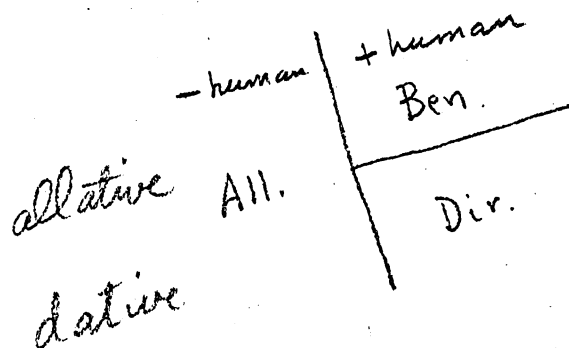 - human + human
Ben.
allative All.
Dir.
dative